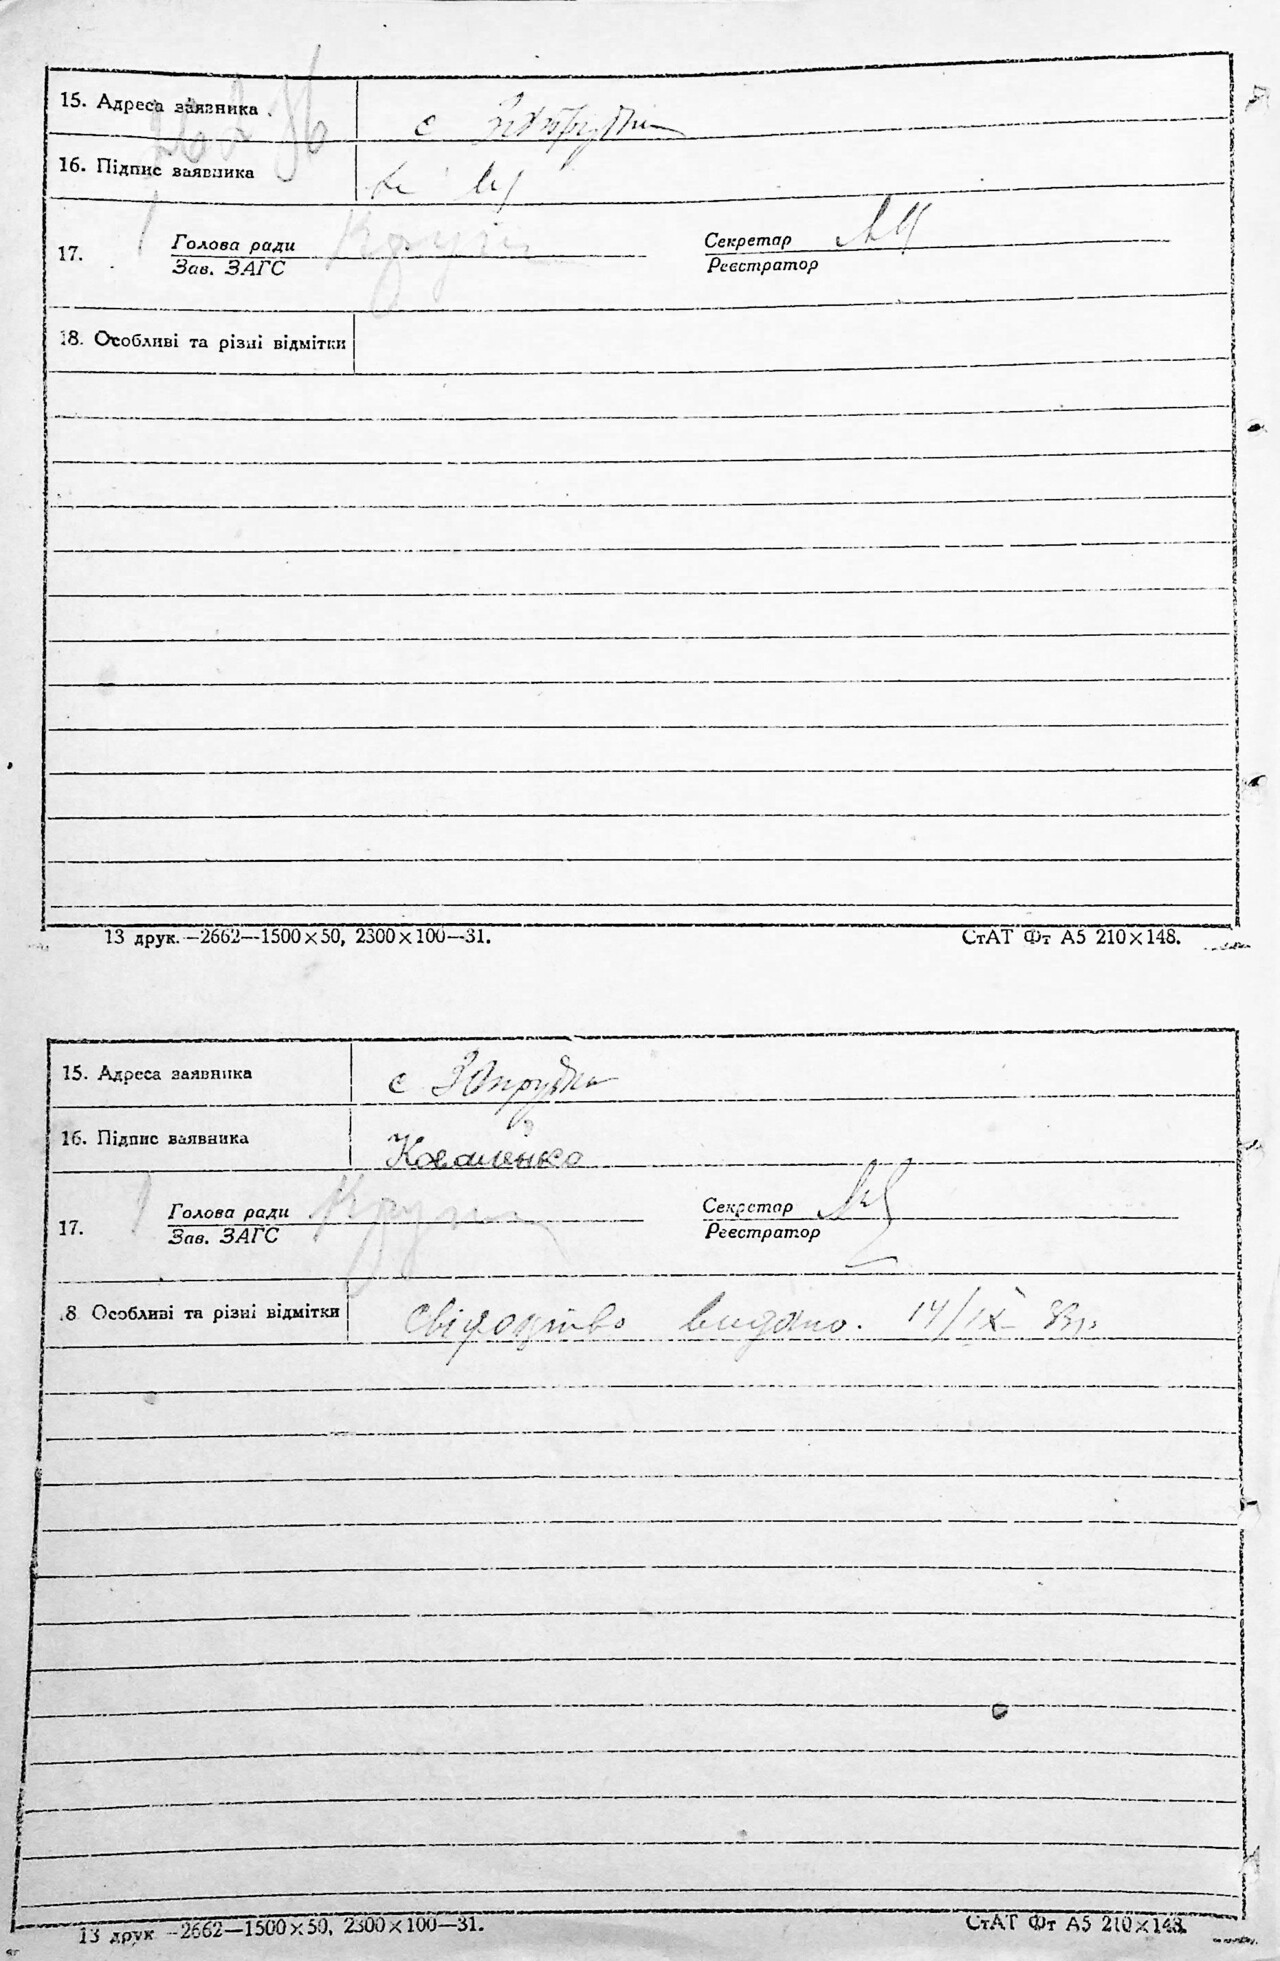 15. Адреса заявника
с Запрудка
16. Підпис заявника
17. Голова ради Секретар
Зав. ЗАГС Реєстратор
18. Особливі та різні відмітки
13 друк.—2662—1500×50, 2300×100—31. СтАТ Фт А5 210×148.
15. Адреса заявника с Запрудка
16. Підпис заявника Коваленко
17. Голова ради Секретар
Зав. ЗАГС Реєстратор
8 Особливі та різні відмітки свідоцтво видано. 14/IX
13 друк —2662—1500×50, 2300×100—31. СтАТ Фт А5 210×148.